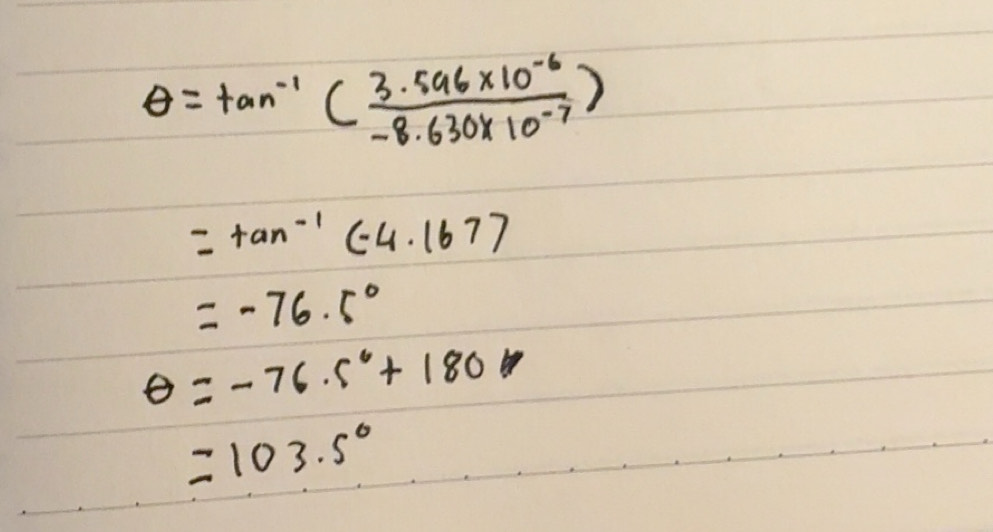 θ = tan⁻¹ ( 3.596 × 10⁻⁶ / -8.630 × 10⁻⁷ )
= tan⁻¹ (-4.1677
= -76.5°
θ = -76.5° + 180
= 103.5°